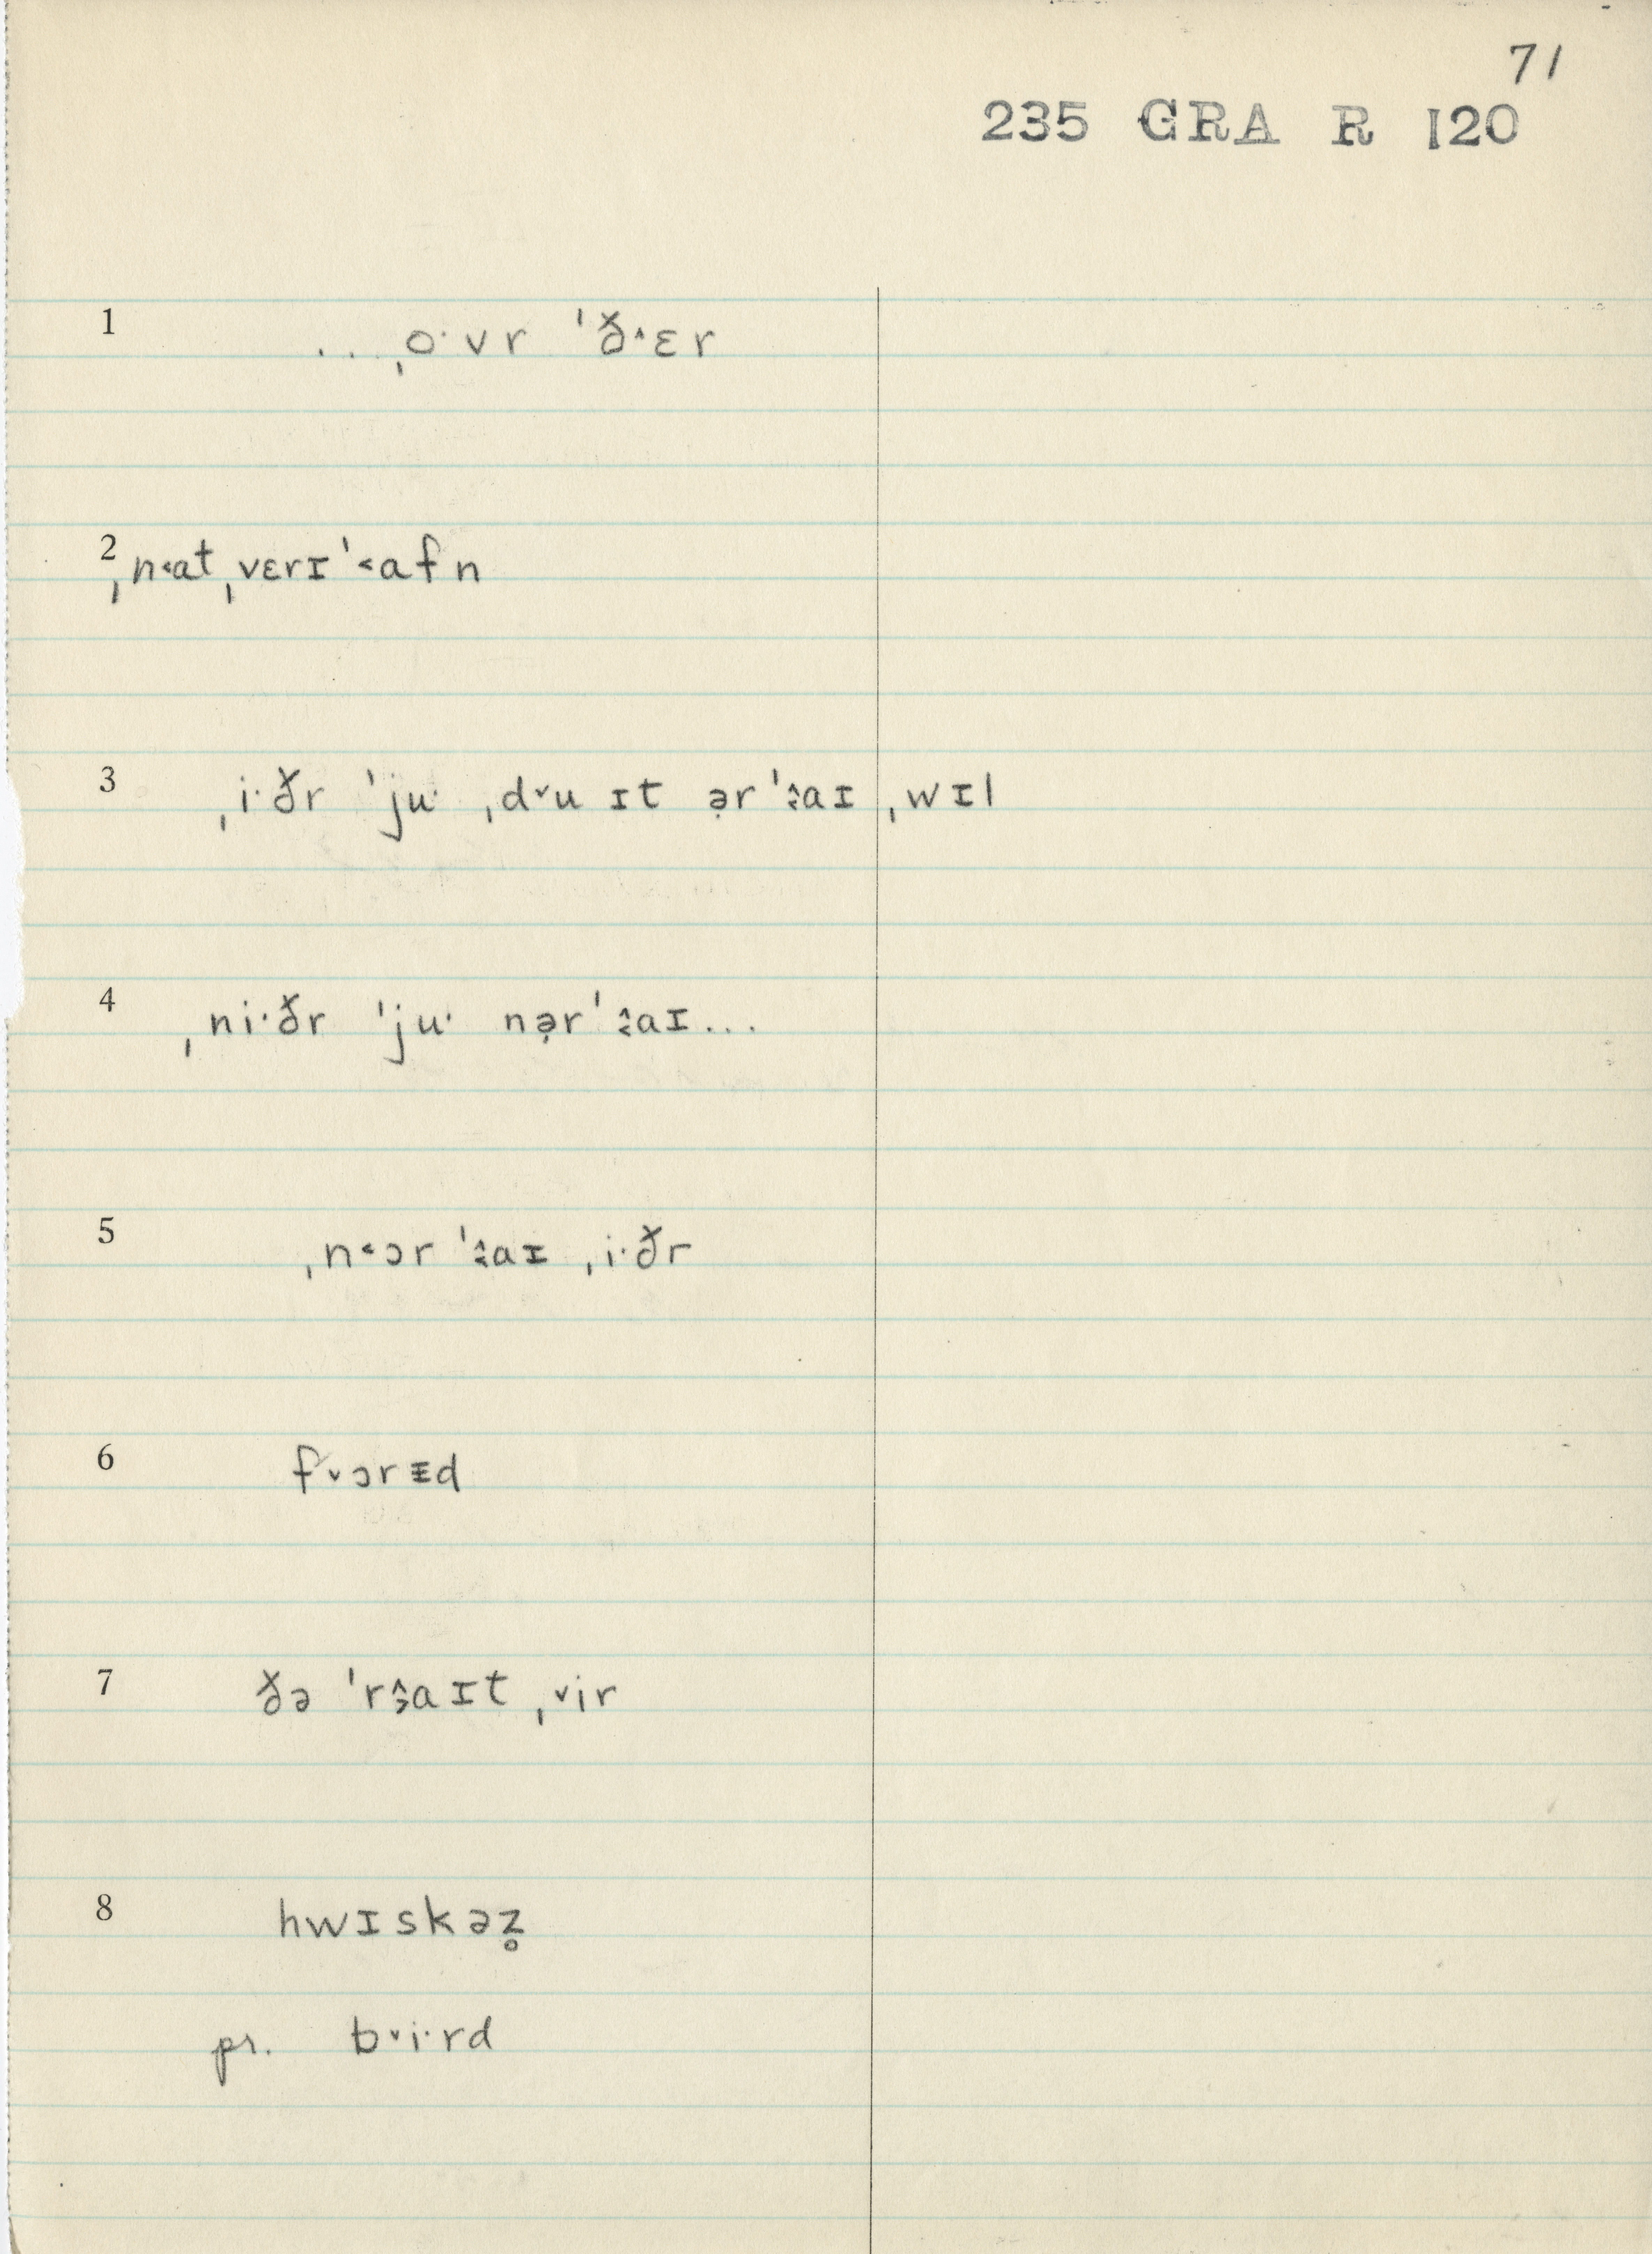 71
235 GRA R 120
1 ...ˌo·vr ˈð^ɛr
2 ˌn˂at ˌvɛrɪ ˈ˂afn
3 ˌi·ðr ˈju· ˌd˅u ɪt ə̣r ˈ˂̂aɪ ˌwɪl
4 ˌni·ðr ˈju· nə̣r ˈ˂̂aɪ...
5 ˌn˂ɔr ˈ˂̂aɪ ˌi·ðr
6 f˅ɔrᵻd
7 ðə ˈr˃̂aɪt ˌ˅ir
8 hwɪskəz̥
pr. b˅i·rd